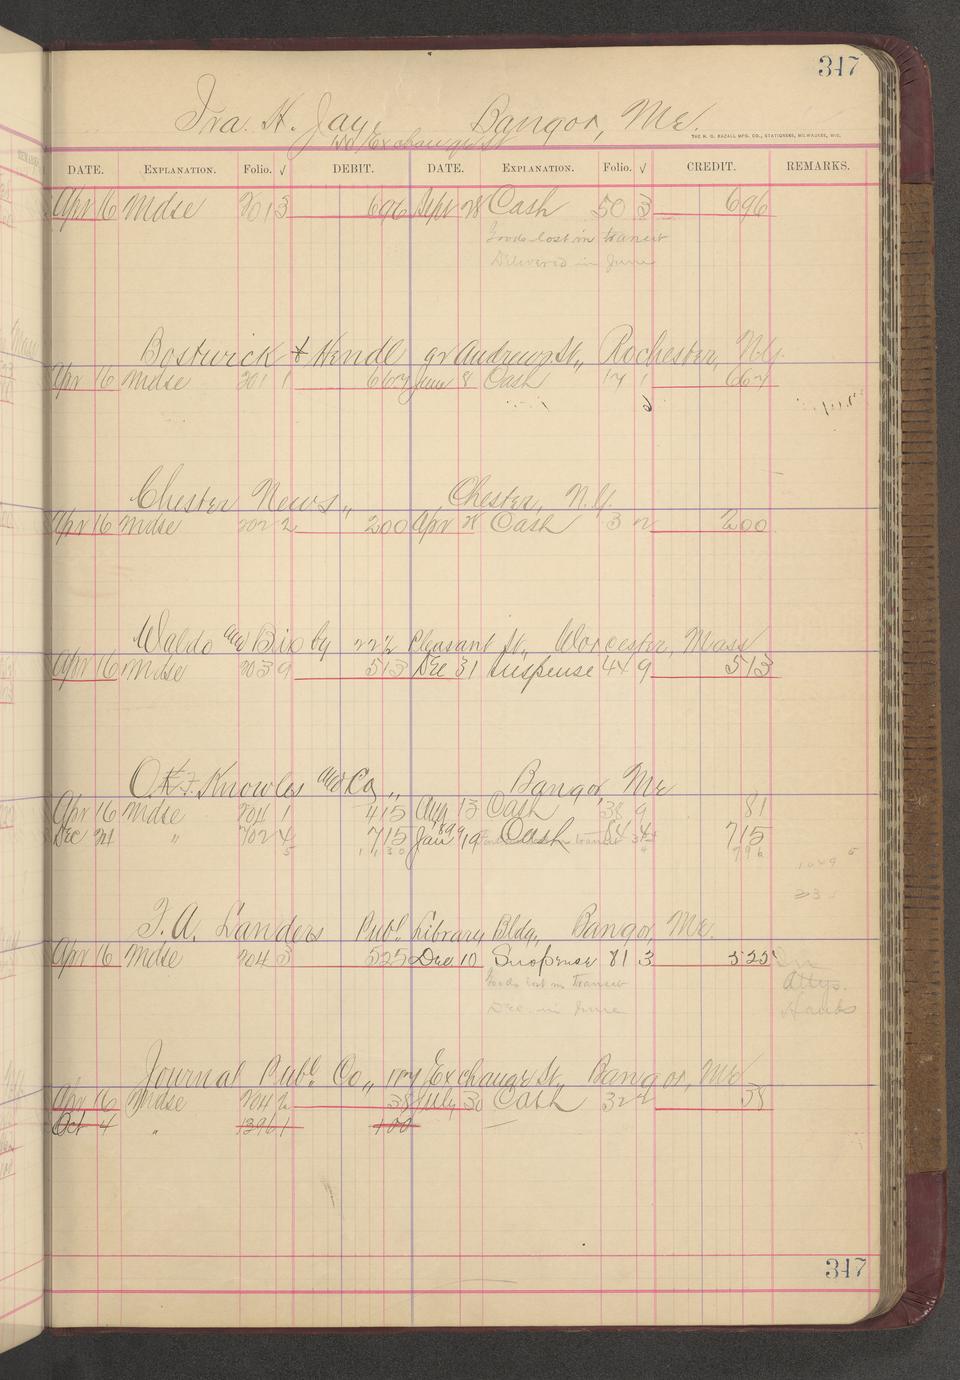 347
Ira. H. Jay, Bangor, Me.
Exchange St
THE H. G. RAZALL MFG. CO., STATIONERS, MILWAUKEE, WIS.
DATE. EXPLANATION. Folio. √ DEBIT. DATE. EXPLANATION. Folio. √ CREDIT. REMARKS.
Apr 16 Mdse 201 3 696 Sept 28 Cash 50 3 696
Goods lost in transit
Delivered in June
Bostwick & Hendl Andrews St,, Rochester, N.Y.
Apr 16 Mdse 201 1 667 June 8 Cash 17 1 667
Chester News,, Chester, N.Y.
Apr 16 Mdse 202 2 200 Apr 28 Cash 3 2 200
Waldo and Bixby 22½ Pleasant St,, Worcester, Mass
Apr 16 Mdse 203 9 513 Dec 31 Suspense 44 9 513
Knowles and Co,, Bangor, Me
Apr 16 Mdse 204 1 415 Aug 13 Cash 38 9 81
Dec 24 " 702 4 715 Jan 19 Cash 64 4 715
1130 796
1049
F. A. Landers Publ. Library Bldg,, Bangor, Me.
Apr 16 Mdse 204 3 525 Dec 10 Suspense 81 3 525
Goods lost in transit Attys.
Dec. in June Hands
Journal Publ. Co,, Exchange St,, Bangor, Me
Apr 16 Mdse 204 2 38 July 30 Cash 32 2 38
Oct 4 " 1396 1 100
347